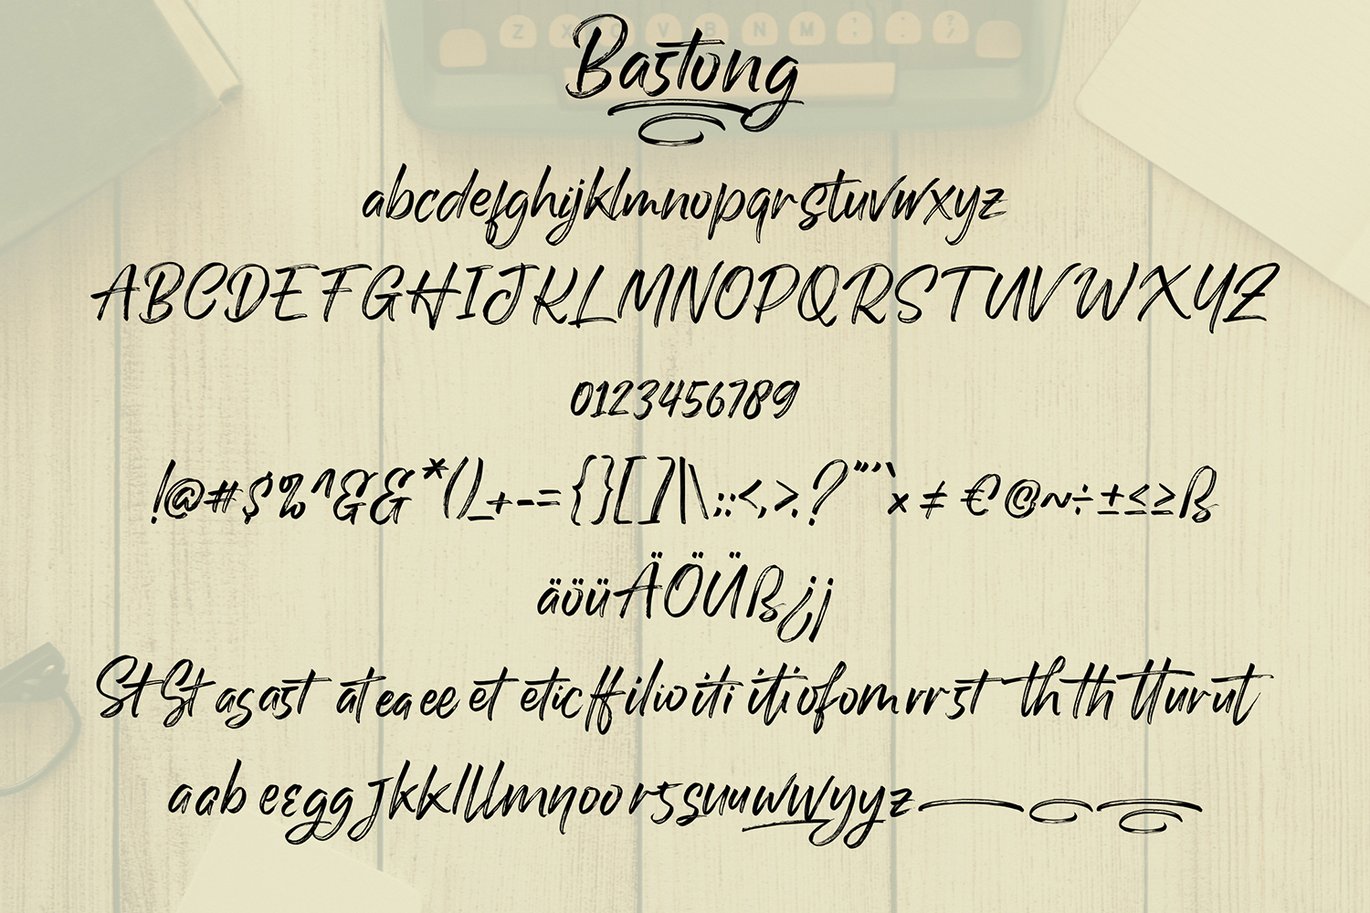 Z X C V B N M ; : ?
Bastong
abcdefghijklmnopqrstuvwxyz
ABCDEFGHIJKLMNOPQRSTUVWXYZ
0123456789
!@#$%^&&*()_+-={}[]|\;:<,>.?"''`×≠€©~÷±≤≥ß
äöüÄÖÜß¿¡
St St as as st at ea ee et etic ff il io iti iti of om rr st th th tt ur ut
a a b e e g g J k k l l l m n o o r s s u u w w y y z